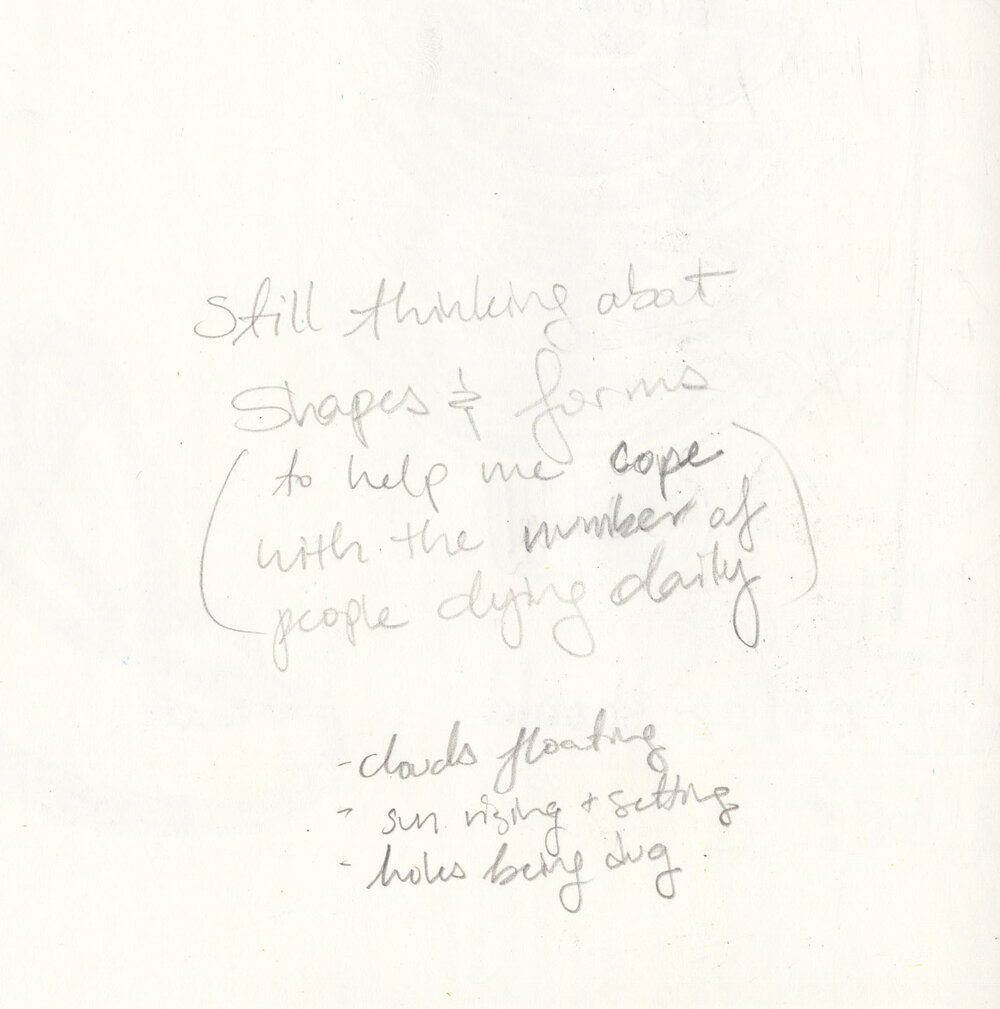 Still thinking about
Shapes & forms
(to help me cope
with the number of
people dying daily)
- clouds floating
- sun rising + setting
- holes being dug